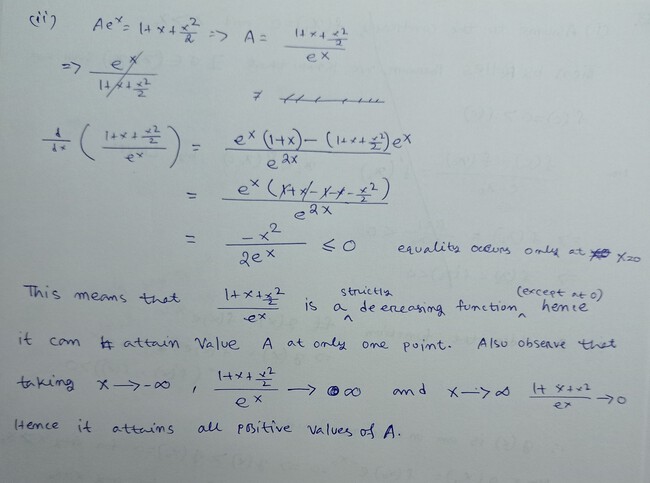 (ii) Ae^x = 1+x+x²/2 => A = (1+x+x²/2)/e^x
=> e^x/(1+x+x²/2)
d/dx ((1+x+x²/2)/e^x) = (e^x(1+x) - (1+x+x²/2)e^x)/e^{2x}
= e^x(1+x-1-x-x²/2)/e^{2x}
= -x²/(2e^x) ≤ 0 equality occurs only at x=0
This means that (1+x+x²/2)/e^x is a strictly decreasing function (except at 0), hence
it can attain value A at only one point. Also observe that
taking x → -∞, (1+x+x²/2)/e^x → ∞ and x → ∞ (1+x+x²)/e^x → 0
Hence it attains all positive values of A.